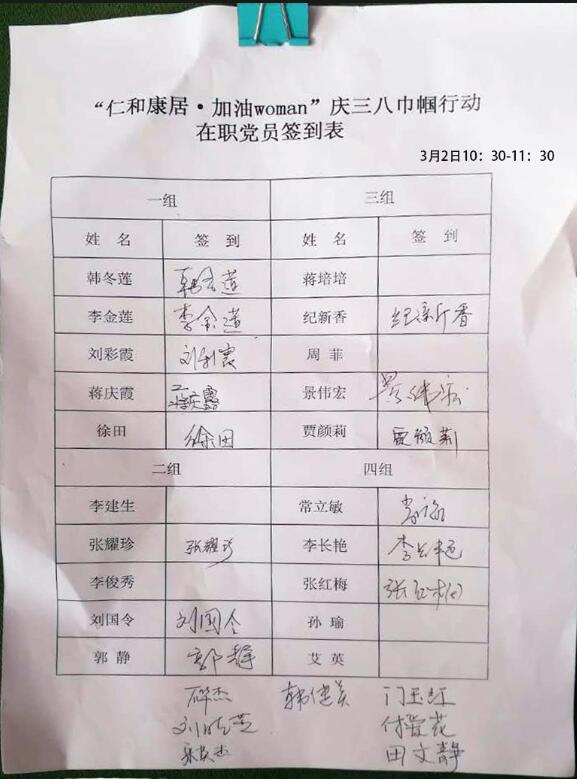 “仁和康居·加油woman”庆三八巾帼行动
在职党员签到表
3月2日10：30-11：30
一组 三组
姓 名 签 到 姓 名 签 到
韩冬莲 韩冬莲 蒋培培
李金莲 李金莲 纪新香 纪新香
刘彩霞 刘彩霞 周 菲
蒋庆霞 蒋庆霞 景伟宏 景伟宏
徐田 徐田 贾颜莉 贾颜莉
二组 四组
李建生 常立敏 常立敏
张耀珍 张耀珍 李长艳 李长艳
李俊秀 张红梅 张红梅
刘国令 刘国令 孙 瑜
郭 静 郭静 艾 英
韩健美 门玉红
刘晓莲 付爱花
田文静